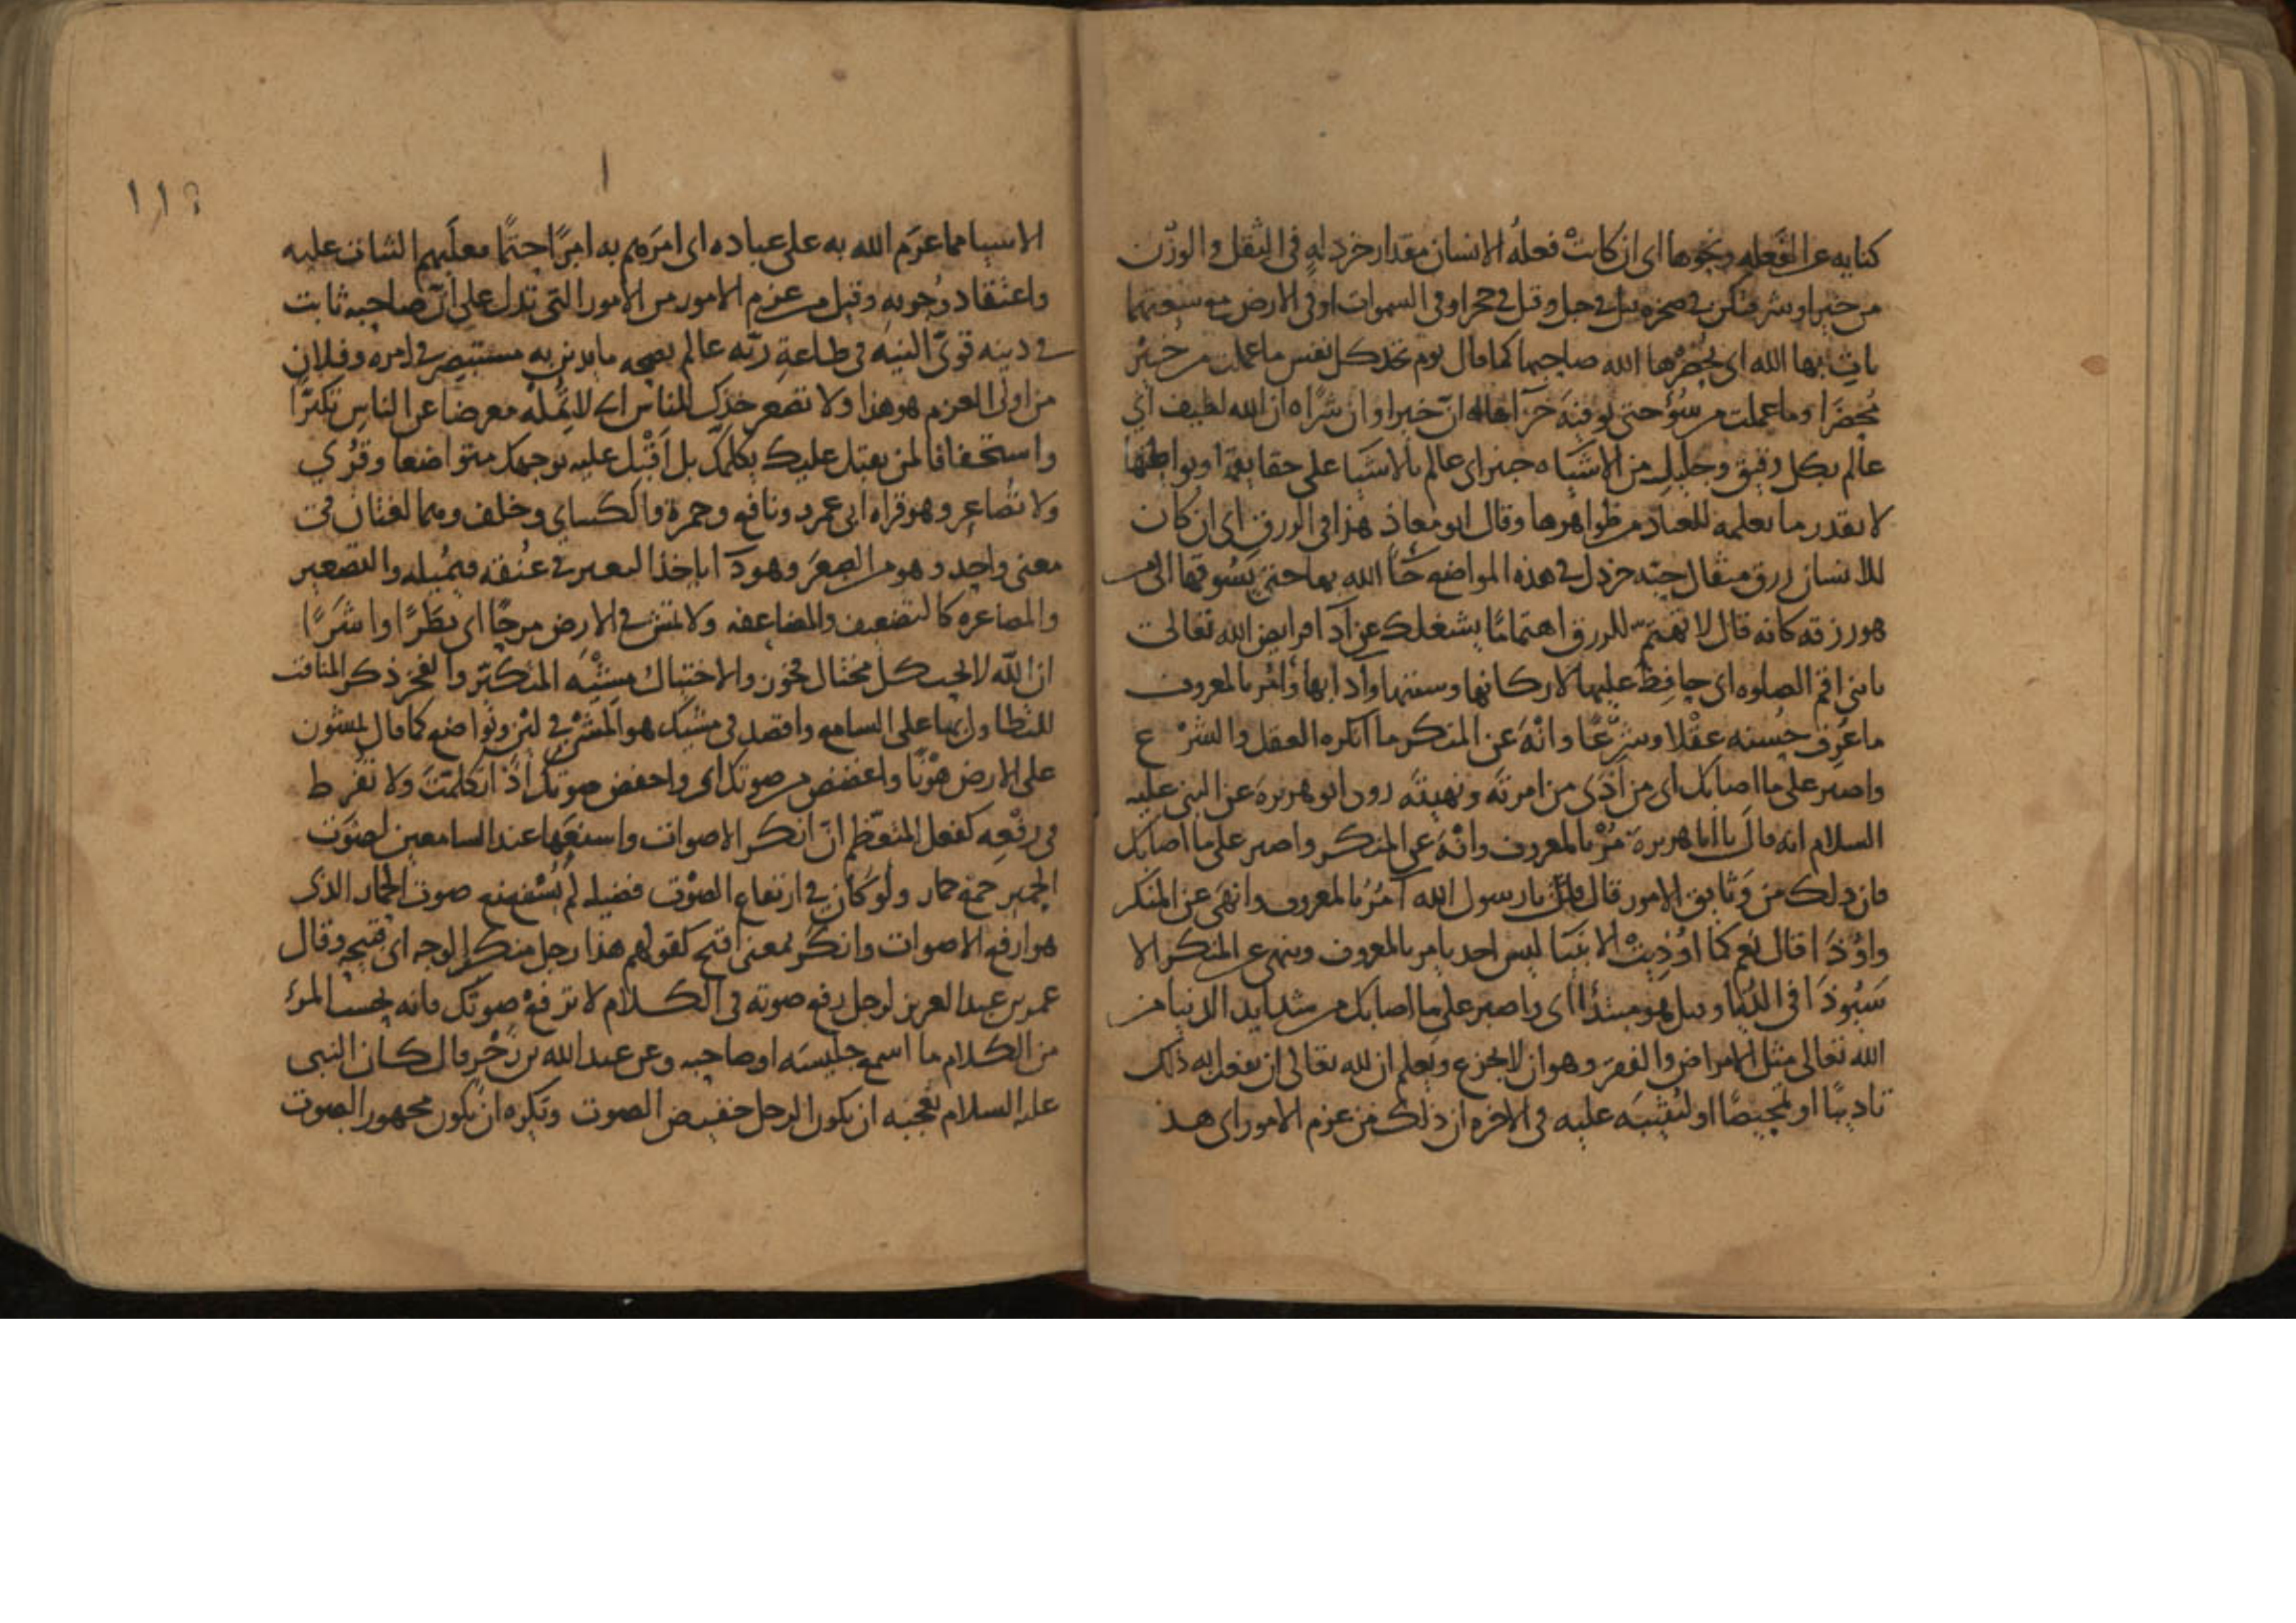 كناية عن الفعلة ونحوها اى ان كانت فعلة الانسان مقدار خردلةٍ فى الثقل والوزن
من خير او شر فتكن فى صخرة قيل فى جبل وقيل فى حجر او فى السموات او فى الارض مع سعتهما
يات بها الله اى يُحْضِرْها الله صاحبها كما قال يوم تجد كل نفس ما عملت من خيْرٍ
مُحضَرًا وما عملت من سُوْءٍ حتى يوفيَه جزآ ان خيرا وان شرًا ان الله لطيف اى
عالم بكل دقيق وجليلٍ من الاشياء خبير اى عالم بالاشيا على حقايقها وبواطنها
لا بقدر ما يعلمه للعباد من ظواهرها وقال ابو معاذ هذا فى الرزق اى ان كان
للانسان رزق مثقال حبّة خردل فى هذه المواضع جآ الله بها حتى يَسُوقها الى من
هو رزقه كانه قال لا تهتمّ للرزق اهتمامًا يشغلك عن ادآ فرايض الله تعالى
يابنى اقم الصلوه اى حافِظْ عليها لاركانها وسننها وآدابها وَأْمُر بالمعروف
ما عُرِف حُسنه عقْلا وشرْعًا وانْهَ عن المنكر ما انكره العقل والشرْع
واصبر على ما اصابك اى من اَذَى من امرتَه ونهيتَه روى ابو هريرة عن النبى عليه
السلام انه قال يا ابا هريرة مُرْ بالمعروف وانْهَ عن المنكر واصبر على ما اصابك
فان ذلك من وَثايق الامور قال قلت يا رسول الله آمُرُ بالمعروف وانهَى عن المنكر
واُوْذَا قال نعم كما اُوْذِيتْ الانبيَا ليس احد يامر بالمعروف وينهى عن المنكر الا
سَيُوذَا فى الدُنيا وقيل هو مبتدًا اى واصبر على ما اصابك من شدايد الدنيا من
الله تعالى مثل الامراض والفقر وهو ان لا يجزع ويعلم ان لله تعالى ان يفعل به ذلك
تاديبًا او تمحيصًا او ليُثيبَه عليه فى الاخره ان ذلك من عزم الامور اى هذ
١١٢
الاشيا مما عزم الله به على عباده اى امرَهم به امرًا حتمًا فعليهم الثبات عليه
واعتقاد وُجوبه وقيل من عزم الامور من الامور التى تدل على انّ صاحبه ثابت
فى دينه قوىّ النيه فى طاعةِ ربّه عالم بصحه ما يدين به مستبصر فى امره وفلان
من اولى العزم هو هذا ولا تصعر خدّك للناس اى لا تُمِلْه معرضا عن الناس تكبّرًا
واستخفافا لمن يقبل عليك بكلامك بل اَقْبِل عليه بوجهك متواضعا وقُرِي
ولا تصاعر وهو قراه ابى عمرو ونافع وحمزة والكساى وخلف وهما لغتان فى
معنى واحد وهو من الصعَر وهو دآ ياخذ البعير فى عنُقه فيُميله والتصعير
والمصاعره كالتضعيف والمضاعفه ولا تمش فى الارض مرحًا اى بَطَرًا واَشَرًا
ان الله لا يحب كل مختال فخور والاختيال مِشْيَه المتكبّر والفخر ذكر المناقب
للتطاول بها على السامع واقصد فى مشيك هو المشْى فى لين وتواضع كما قال يمشون
على الارض هوْنًا واغضض من صوتك اى واخفض صوتك اذا تكلمتَ ولا تُفْرِط
فى رفْعِه كفعل المتعظّم انّ انكر الاصوات واشنعَها عند السامعين لصَوْت
الحمير جمع حمار ولو كان فى ارتفاع الصوْت فضيله لم يُسْتَشنع صوت الحمار الذى
هو ارفع الاصوات وانكَرُ بمعنى اقبح كقولهم هذا رجل منكر الوجه اى قبيحه وقال
عمر بن عبد العزيز لرجل رفع صوته فى الكلام لا ترفعْ صوتك فانه بحسب المرْءِ
من الكلام ما اسمع جليسَه او صاحبه وعن عبد الله بن زَحْر قال كان النبى
عليه السلام يُعجبُه ان يكون الرجل خفيض الصوت ويكره ان يكون مجهور الصوت